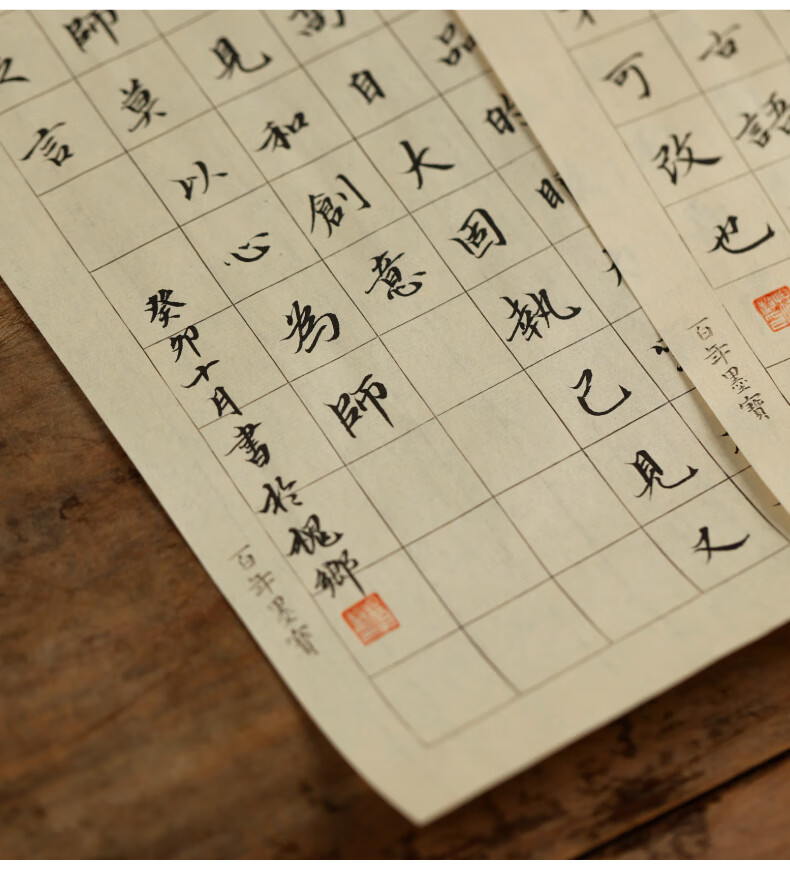 古語
可改也
百年墨寶
品的
高自大固執己見又
見和創意
師莫以心為師
言
癸卯十月書於槐鄉
百年墨寶